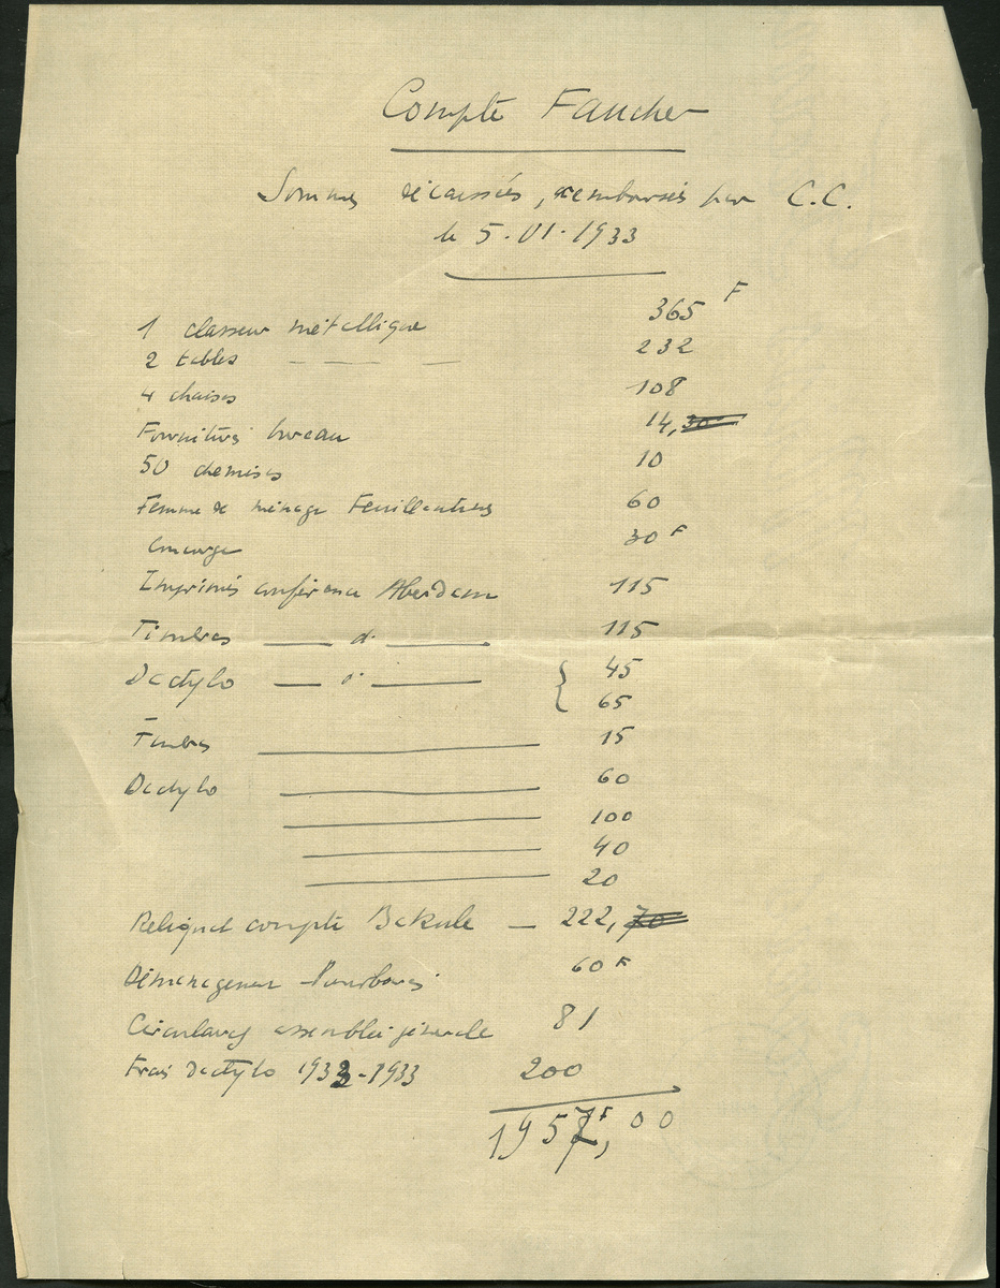 Compte Faucher
Sommes décaissées, remboursées par C.C.
le 5.01.1933
1 classeur métallique 365 F
2 tables — — — 232
4 chaises 108
Fournitures bureau 14,
50 chemises 10
Femme de ménage Feuillantines 60
Concierge 30 F
Imprimés conférence 115
Timbres — d° — 115
Dactylo — d° — { 45
65
Timbres — 15
Dactylo — 60
— 100
— 40
— 20
Reliquat compte Bakule — 222,
Déménageur 60 F
Circulaires assemblée générale 81
Frais dactylo 1932-1933 200
1957F,00